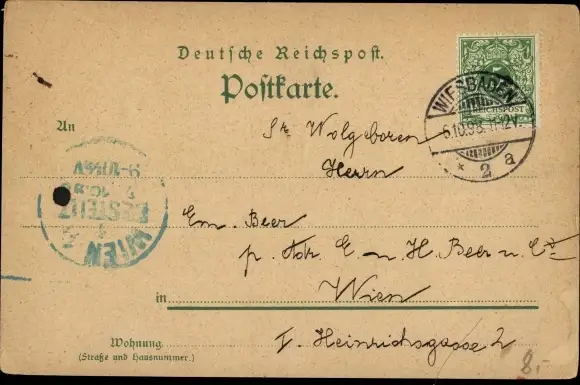 Deutsche Reichspost.
Postkarte.
5
REICHSPOST
WIESBADEN
6.10.98. 11-12V.
* 2 a
An
Sr. Wolgeboren
Herrn
WIEN
BESTELLT
Em. Beer
p. Adr. E. u. H. Beer u. Co.
in Wien
Wohnung
(Straße und Hausnummer.)
I. Heinrichsgasse 2
8.-